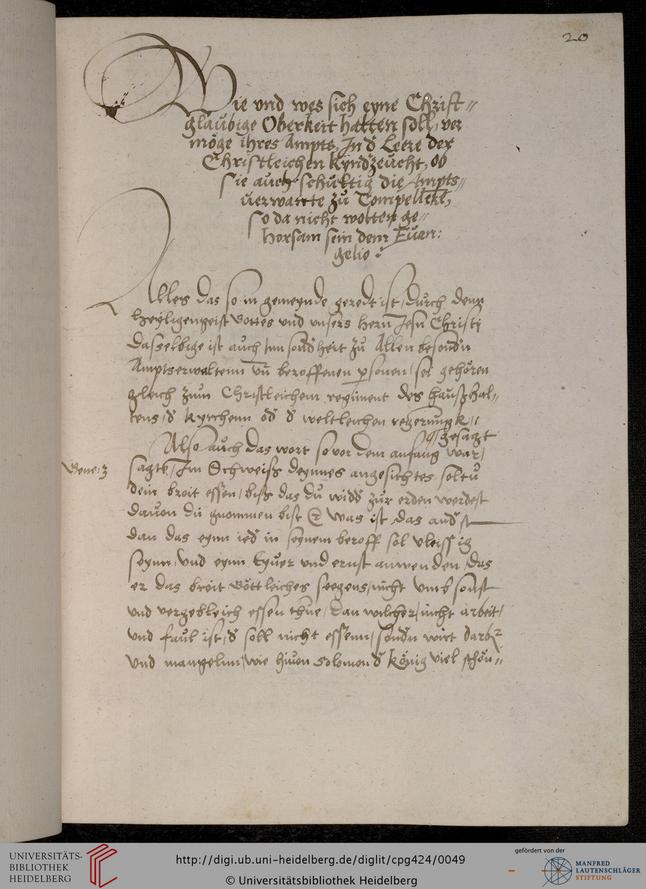 20
Wie vnd wes sich eyne Christ⸗
glaubige Oberkeit halten soll, ver
möge ihres Ampts, In d Leere der
Christleichen Kyndzeucht, ob
sie auch schultig die Ampts⸗
uerwante zu Compelleren,
so da nicht wollen ge⸗
horsam sein dem Euan:
gelio
Alles das so in gemeynde geredt ist, durch denn
heyligenngeist Gottes vnd vnsers hern Jesu Christi
dasselbige ist auch inn sondheit zu Allen besondn
Amptsverwaltenn vn beroffenen personen, sei gehören
gleich zum Christleichem regiment des haußhal⸗
tens, d kyrchenn od d weltleichen regerung
gesagt
Also auch das wort so vor dem anfang war,
Gene: 3
sagtt, Im Schweiß deynnes angesichtes soltu
dein broit essen, biß das du widd zur erden werdest
dauon du gnommen bist Was ist das anders
dan das eynn ied in seynem beroff sol vleissig
seynn, vnd eynn Eyuer vnd ernst anwenden, das
er das broit Göttleiches seegens, nicht vmb sonst
vnd vergebleich essen thue, dan wilcher, nicht arbeit,
vnd faul ist, d soll nicht essenn, sondn wirt darben
vnd mangelnn, wie hiuon Solomon d könig viel schön⸗
UNIVERSITÄTS-
BIBLIOTHEK
HEIDELBERG
http://digi.ub.uni-heidelberg.de/diglit/cpg424/0049
© Universitätsbibliothek Heidelberg
gefördert von der
MANFRED
LAUTENSCHLÄGER
STIFTUNG